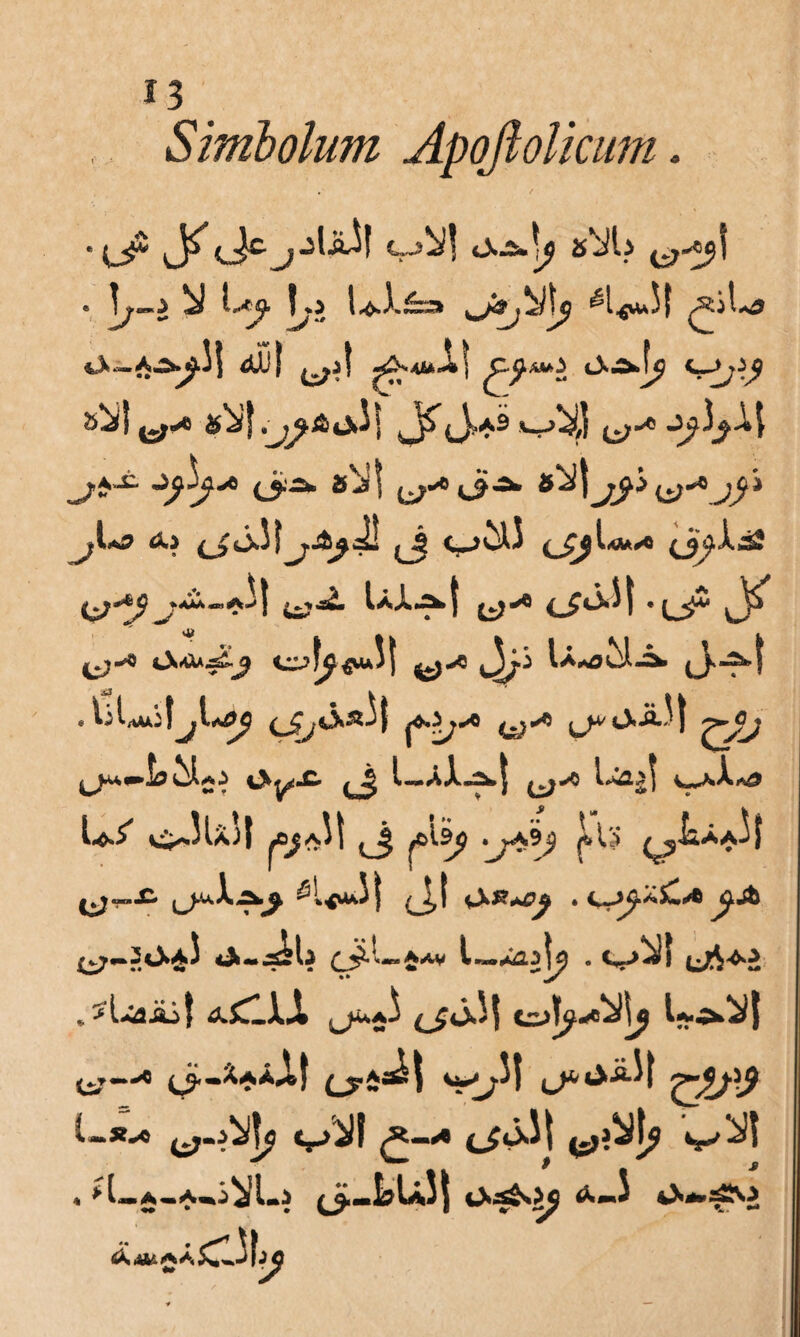 13
Simbolum Apoſtolicum.
اومن بالاه واحد الاب القادر علي كل شي.
صانع السماء والارض كلما يرا وما لا يرا.
وبرب واحد يسوع المسيح ابن الله الوحيد
المولود من الاب قبل كل الدهور. الاه من الاه
نور من نور الاه حق من الاه حق مولود غير
مخلوق مساوي للاب في الجوهر الذي به صار
كل شي. الذي من اجلنا نحن المعشر ومن
اجل خلاصنا نزل من السموات وتجسد من
روح القدس من مريم العذري وصار انسانا.
صلب ايضا من اجلنا في عهد بيلاطس
المنطقي تالم وقبر. وقام في اليوم الثالث كما
هو مكتوب. وصعد الي السماء وجلس عن
يمين الاب. وايضا سياتي بمجد ليدين
الاحيا والاموات الذي ليس لملكه انقضاء.
وبروح القدس الرب المحي المنبثق من
الاب والابن الذي مع الاب والابن معا
يسجد له ويمجد الناطق بالانبياء.
وبالكنيسه